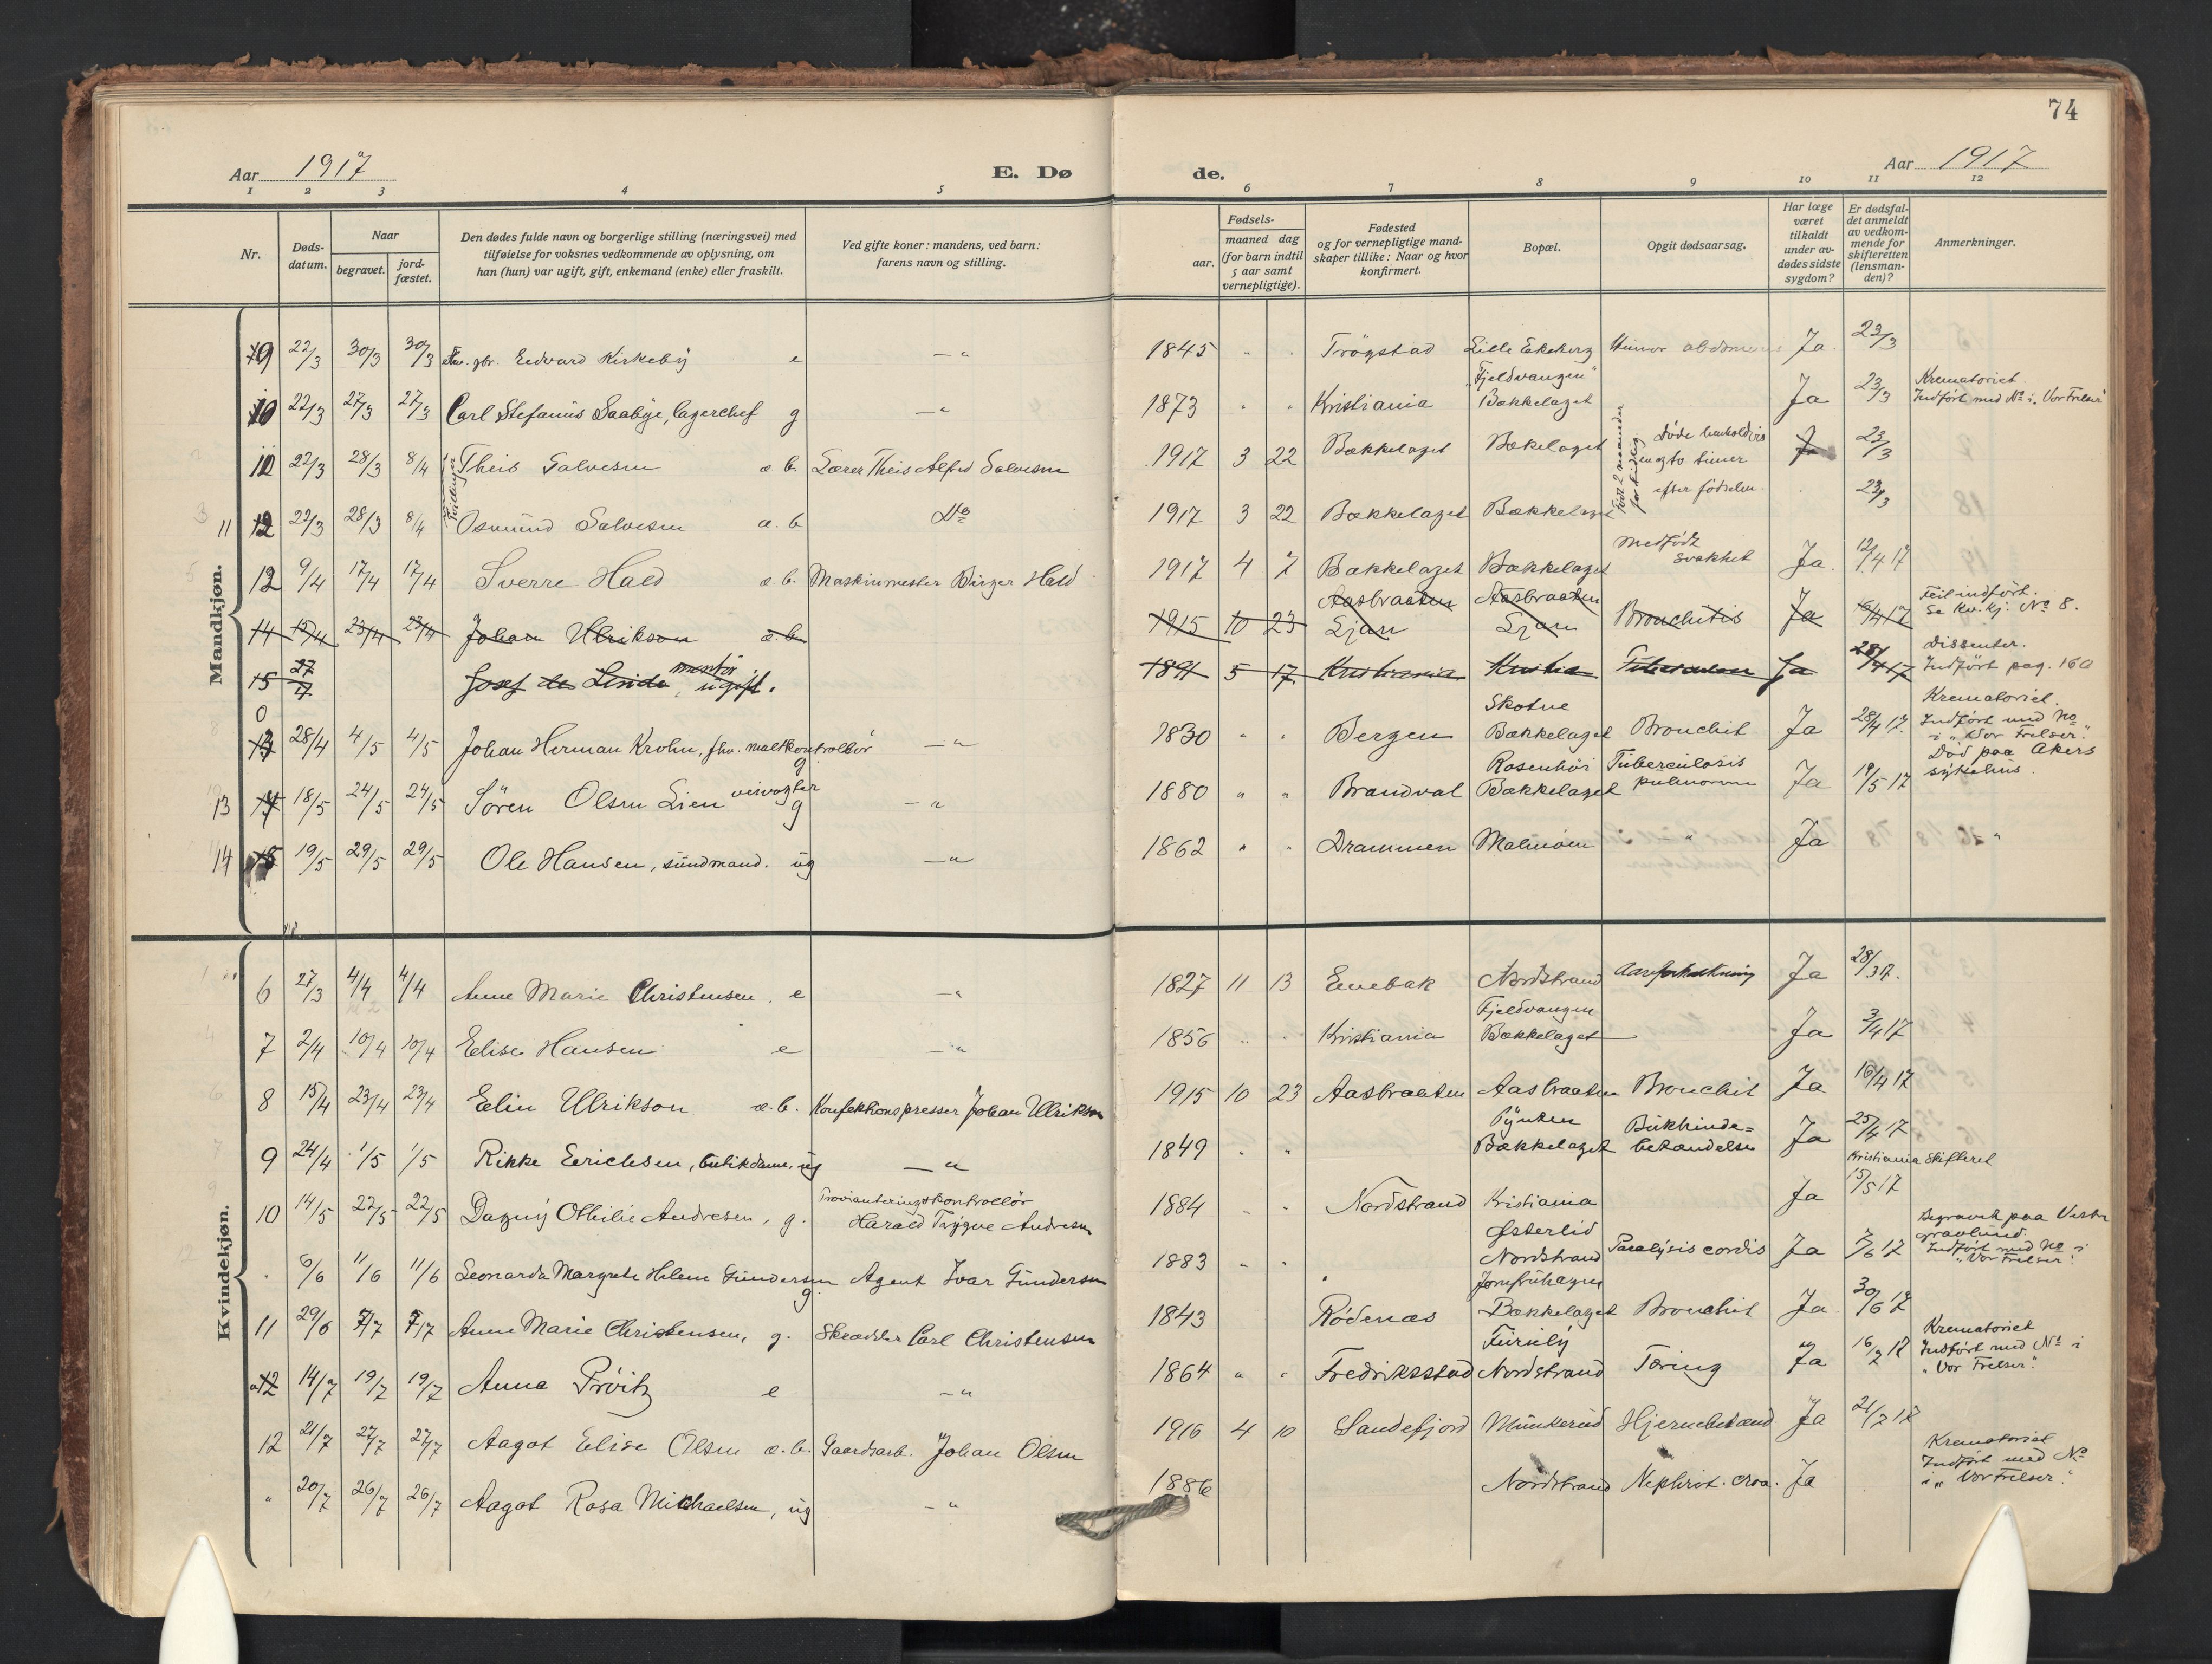 74
Aar 1917 E. Døde. Aar 1917
1 2 3 4 5 6 7 8 9 10 11 12
Nr.
Døds-datum.
Naar
begravet.
jord-fæstet.
Den dødes fulde navn og borgerlige stilling (næringsvei) med
tilføielse for voksnes vedkommende av oplysning, om
han (hun) var ugift, gift, enkemand (enke) eller fraskilt.
Ved gifte koner: mandens, ved barn:
farens navn og stilling.
Fødsels-
aar.
maaned dag
(for barn indtil
5 aar samt
vernepligtige).
Fødested
og for vernepligtige mand-
skaper tillike: Naar og hvor
konfirmert.
Bopæl.
Opgit dødsaarsag.
Har læge
været
tilkaldt
under av-
dødes sidste
sygdom?
Er dødsfal-
det anmeldt
av vedkom-
mende for
skifteretten
(lensman-
den)?
Anmerkninger.
Mandkjøn.
9 22/3 30/3 30/3 fhv. gbr. Edvard Kirkeby e —„— 1845 „ „ Trøgstad Lille Ekeberg Tumor abdomens Ja 23/3
10 22/3 27/3 27/3 Carl Stefanus Saabye, lagerchef g —„— 1873 „ „ Kristiania "Fjeldvangen" Bækkelaget Ja 23/3 Krematoriet. Indført med No i „Vor Frelser"
22/3 28/3 8/4 Tvillinger Theis Salvesen æ. b. Lærer Theis Alfred Salvesen 1917 3 22 Bækkelaget Bækkelaget Født 2 maaneder for tidlig. Døde henholdsvis en og to timer efter fødselen. 23/3
11 12 22/3 28/3 8/4 Osmund Salvesen æ. b. Do 1917 3 22 Bækkelaget Bækkelaget 23/3
12 9/4 17/4 17/4 Sverre Hald æ. b. Maskinmester Birger Hald 1917 4 7 Bækkelaget Bækkelaget Medfødt svakhet Ja. 12/4 17
14 15/4 23/4 23/4 Johan Ulrikson æ. b. 1915 10 23 Aasbraaten Ljan Aasbraaten Ljan Bronchitis Ja 16/4 17 Feil indført. Se kv. kj. No 8.
15 27/4 Josef de Linde, montør ugift. 1891 5 17 Kristiania Kristia Tuberculose Ja 28/4 17 Dissenter. Indført pag. 160
0 28/4 4/5 4/5 Johan Herman Krohn, fhv. maltkontrollør g —„— 1830 „ „ Bergen Skotne Bækkelaget Bronchit Ja 28/4 17. Krematoriet. Indført med No i „Vor Frelser".
13 14 18/5 24/5 24/5 Søren Olsen Lien veivogter g —„— 1880 „ „ Brandval Rosenhøi Bækkelaget Tuberculosis pulmonum Ja 19/5 17 Død paa Akers sykehus.
14 15 19/5 29/5 29/5 Ole Hansen, sundmand. ug —„— 1862 „ „ Drammen Malmøen „ Ja „
Kvindekjøn.
6 27/3 4/4 4/4 Anne Marie Christensen. e —„— 1827 11 13 Enebak Nordstrand Aareforkalkning Ja 28/3 17.
7 2/4 10/4 10/4 Elise Hansen e —„— 1856 „ „ Kristiania Fjeldvangen Bækkelaget — Ja 3/4 17
8 15/4 23/4 23/4 Elin Ulrikson æ. b. Konfektionspresser Johan Ulrikson 1915 10 23 Aasbraaten Aasbraaten Bronchit Ja 16/4 17
9 24/4 1/5 1/5 Rikke Erichsen, butikdame, ug —„— 1849 „ „ Pynten Bækkelaget Bukhinde=betændelse Ja 25/4 17 Kristiania Skifteret
10 14/5 22/5 22/5 Dagny Othilie Andresen, g. Provianteringskontrollør Harald Trygve Andresen 1884 „ „ Nordstrand Kristiania Ja 15/5 17
„ 6/6 11/6 11/6 Leonarda Margrete Helene Gundersen g. Agent Ivar Gundersen 1883 „ „ Østerlid Nordstrand Paralysis cordis Ja 7/6 17 Begravet paa Vestre gravlund. Indført med No i „Vor Frelser".
11 29/6 7/7 7/7 Anne Marie Christensen, g. Skrædder Carl Christensen 1843 Rødenæs Jomfruhagen Bækkelaget Bronchit Ja 30/6 17
12 14/7 19/7 19/7 Anna Prøitz e —„— 1864 „ „ Fredriksstad Furuly Nordstrand Tæring Ja 16/7 17 Krematoriet Indført med No i „Vor Frelser".
12 21/7 27/7 27/7 Aagot Elise Olsen æ. b. Gaardsarb. Johan Olsen 1916 4 10 Sandefjord Munkerud Hjernebetænd. Ja 21/7 17
„ 20/7 26/7 26/7 Aagot Rosa Michaelsen, ug —„— 1886 Nordstrand Nephrit. Ja Krematoriet Indført med No i „Vor Frelser".